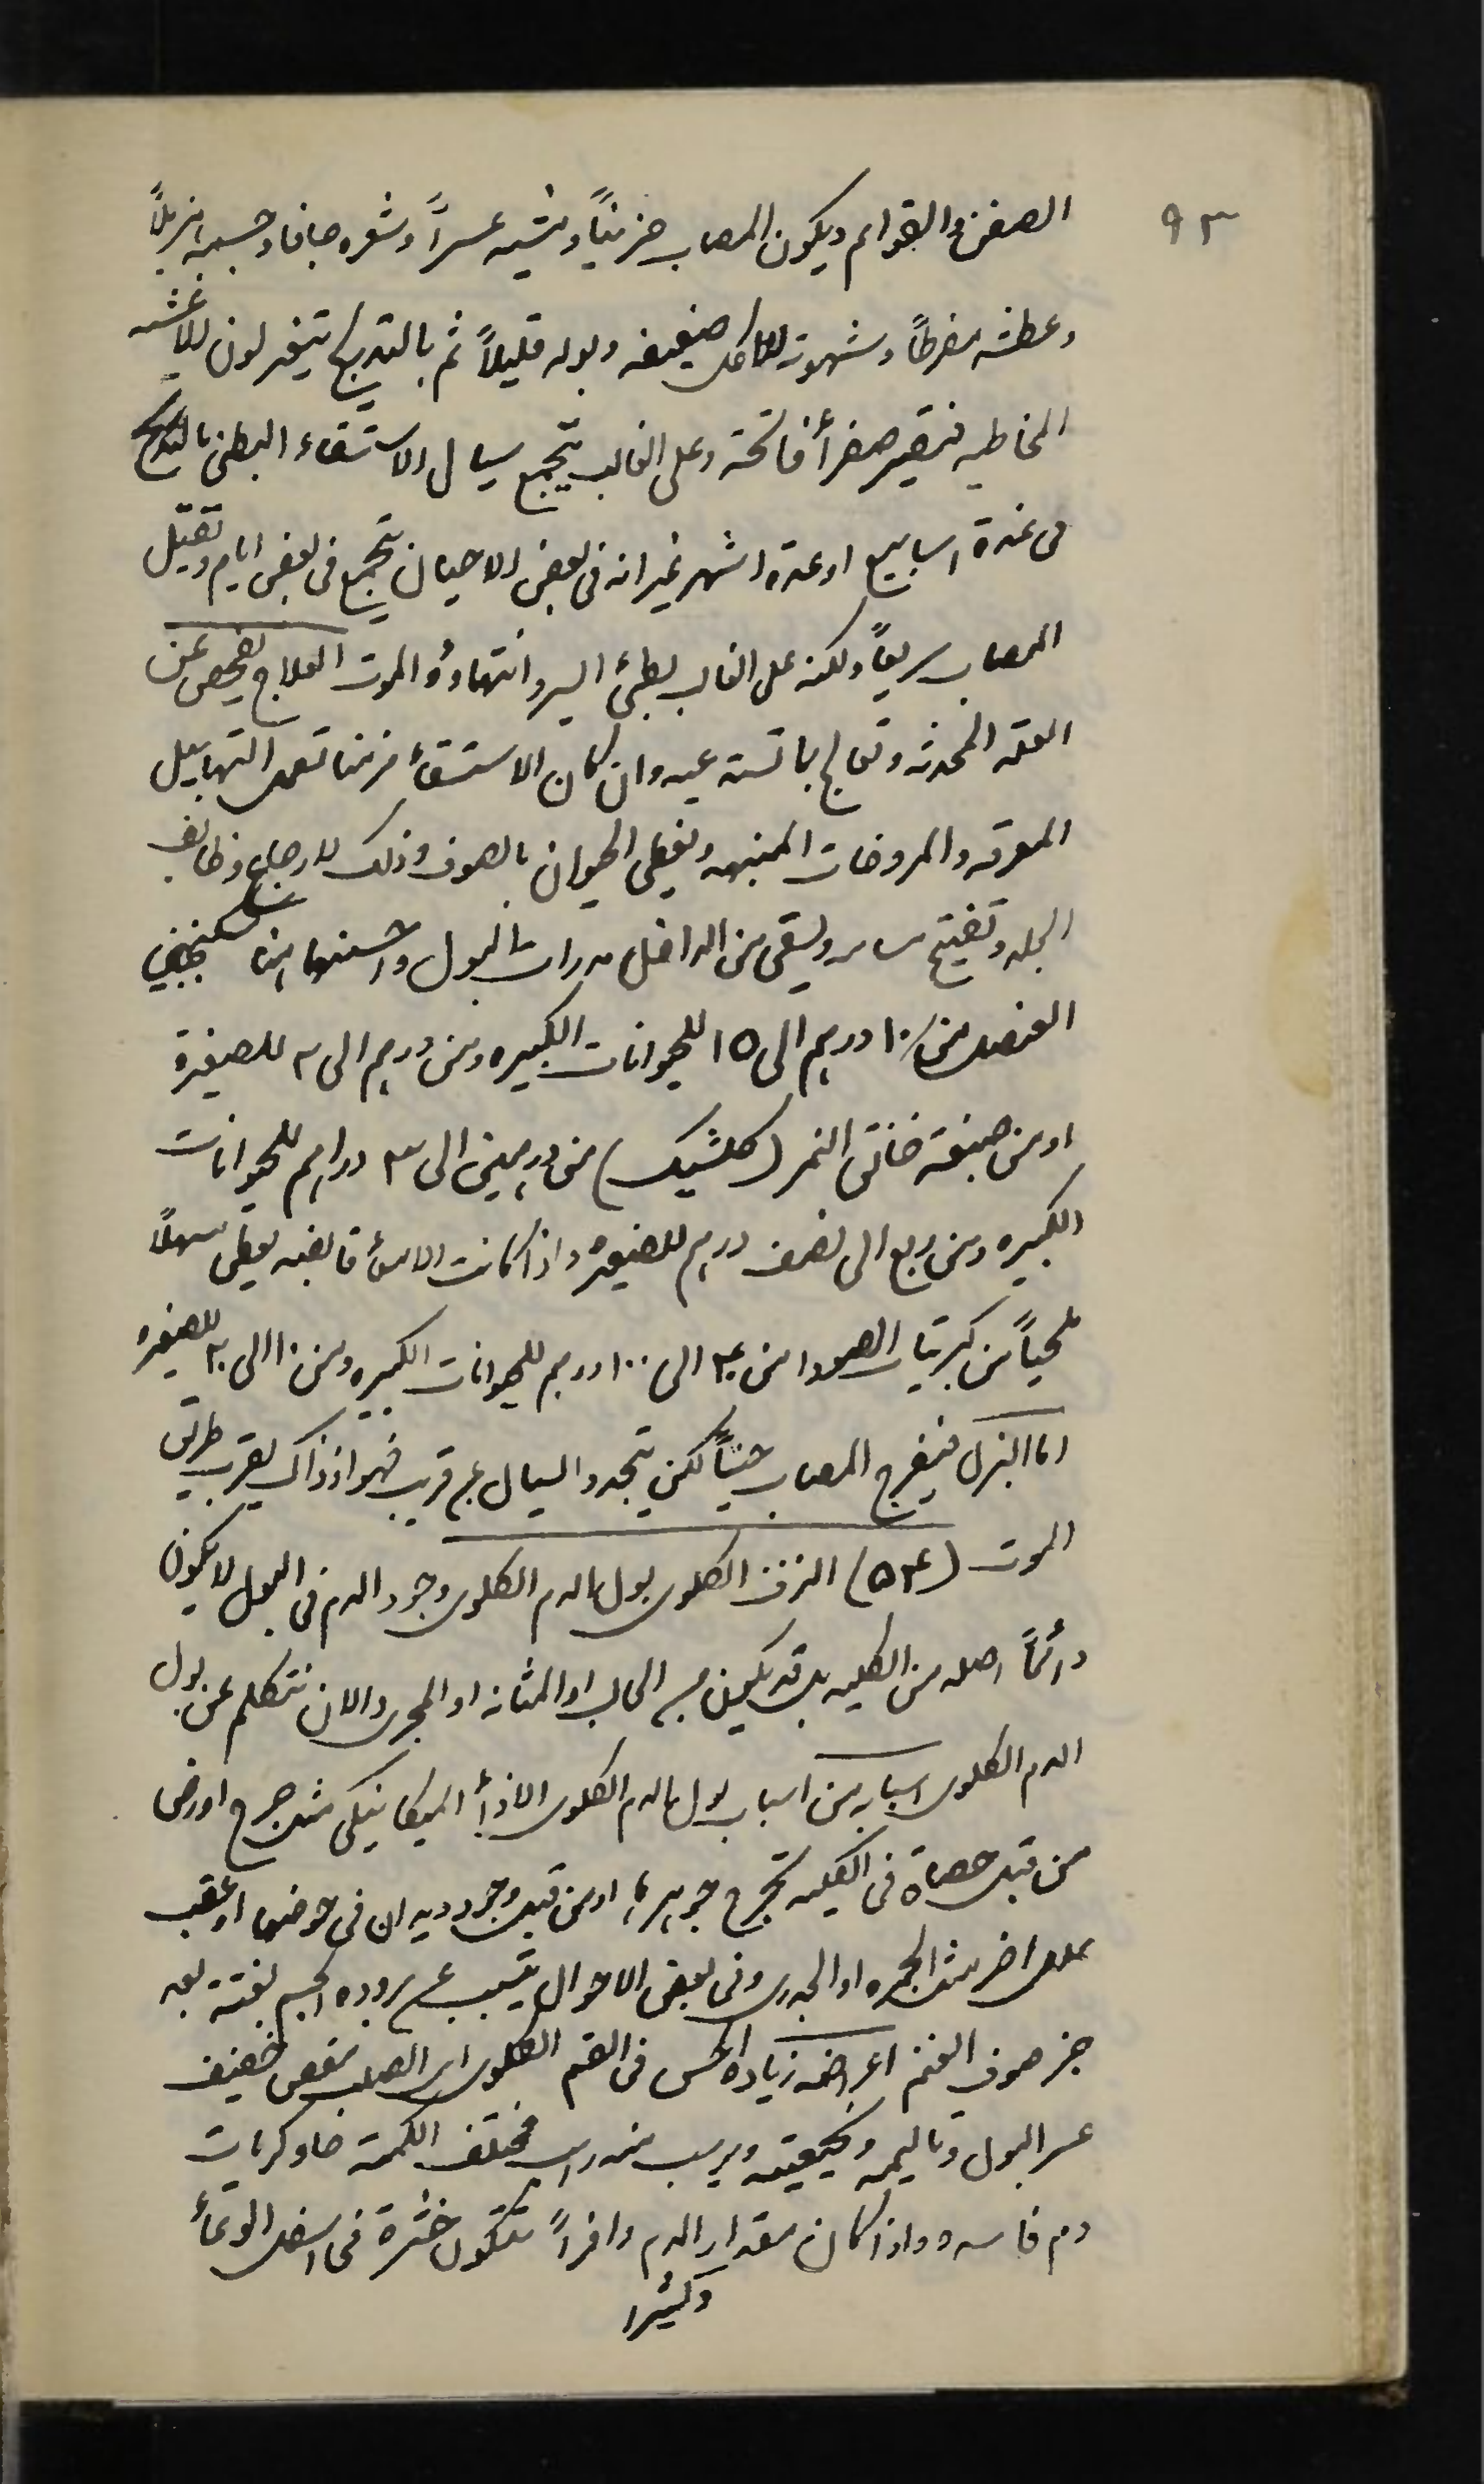 ٩٣
الصفن والقوائم ويكون المصاب حزيناً ومشيه عسراً وشعره جافا وجسمه هزيلاً
وعطشه مفرطاً وشهوته للاكل ضعيفه وبوله قليلاً ثم بالتدريج يتغير لون الاغشيه
المخاطيه فتصير صفرأ فاتحة وعلى الغالب يتجمع سيال الاستسقاء البطنى بالتدريج
فى عدة اسابيع او عدة اشهر غير انه فى بعض الاحيان يتجمع فى بعض ايام وتقتل
المصاب سريعاً ولكنه على الغالب بطئ السير وانتهاؤه الموت العلاج يفحص عن
العله المحدثه وتعالج بما تستدعيه وان كان الاستسقأ مزمنا تعمل التهابيل
المعرقه والمروخات المنبهه ويغطى الحيوان بالصوف وذلك لارجاع وظائف
الجلد وتفتيح مسامه ويسقى من الداخل مدرات البول واحسنها هنا سكنجبين
العنصل من ١٠ درهم الى ١٥ للحيوانات الكبيره ومن درهم الى ٢ للصغيرة
او من صبغة خانق النمر (كلشيك) من درهمين الى ٣ دراهم للحيوانات
الكبيره ومن ربع الى نصف درهم للصغيره واذا كانت الامعأ قابضه يعطى مسهلاً
ملحياً من كبريتات الصودا من ٤٠ الى ١٠٠ درهم للحيوانات الكبيره ومن ١٠ الى ٢٠ للصغيره
اما البزل فيفرج المصاب حيناً لكن يتجدد السيال عن قريب فهو اذ ذاك يقرب طرق
الموت (٥٤) النزف الكلوى بول الدم الكلوى وجود الدم فى البول لا يكون
دائماً اصله من الكليه بل قد يكون من الحالب او المثانه او المجرى والان نتكلم عن بول
الدم الكلوى اسبابه من اسباب بول الدم الكلوى الاذأ الميكانيكى مثل جرح او رض
من قبل حصاة فى الكليه تجرح جوهرها او من قبل وجود ديدان فى حوضها او عقب
علل اخر مثل الجمره او الجدرى وفى بعض الاحوال يتسبب عن بروده الجسم بغتة بعد
جز صوف الغنم اعراضه زيادة الحس فى القسم الكلوى اى الصلب مغص خفيف
عسر البول وتاليمه وكيفيته ويرسب منه راسب مختلف الكمية حاو كريات
دم فاسده واذا كان مقدار الدم وافراً تتكون خثرة فى اسفل الوعأ
وكثيرا